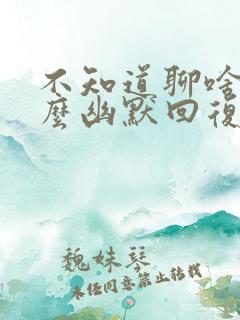 不知道聊啥
麼幽默回復
魏妹琴
未经同意禁止转载